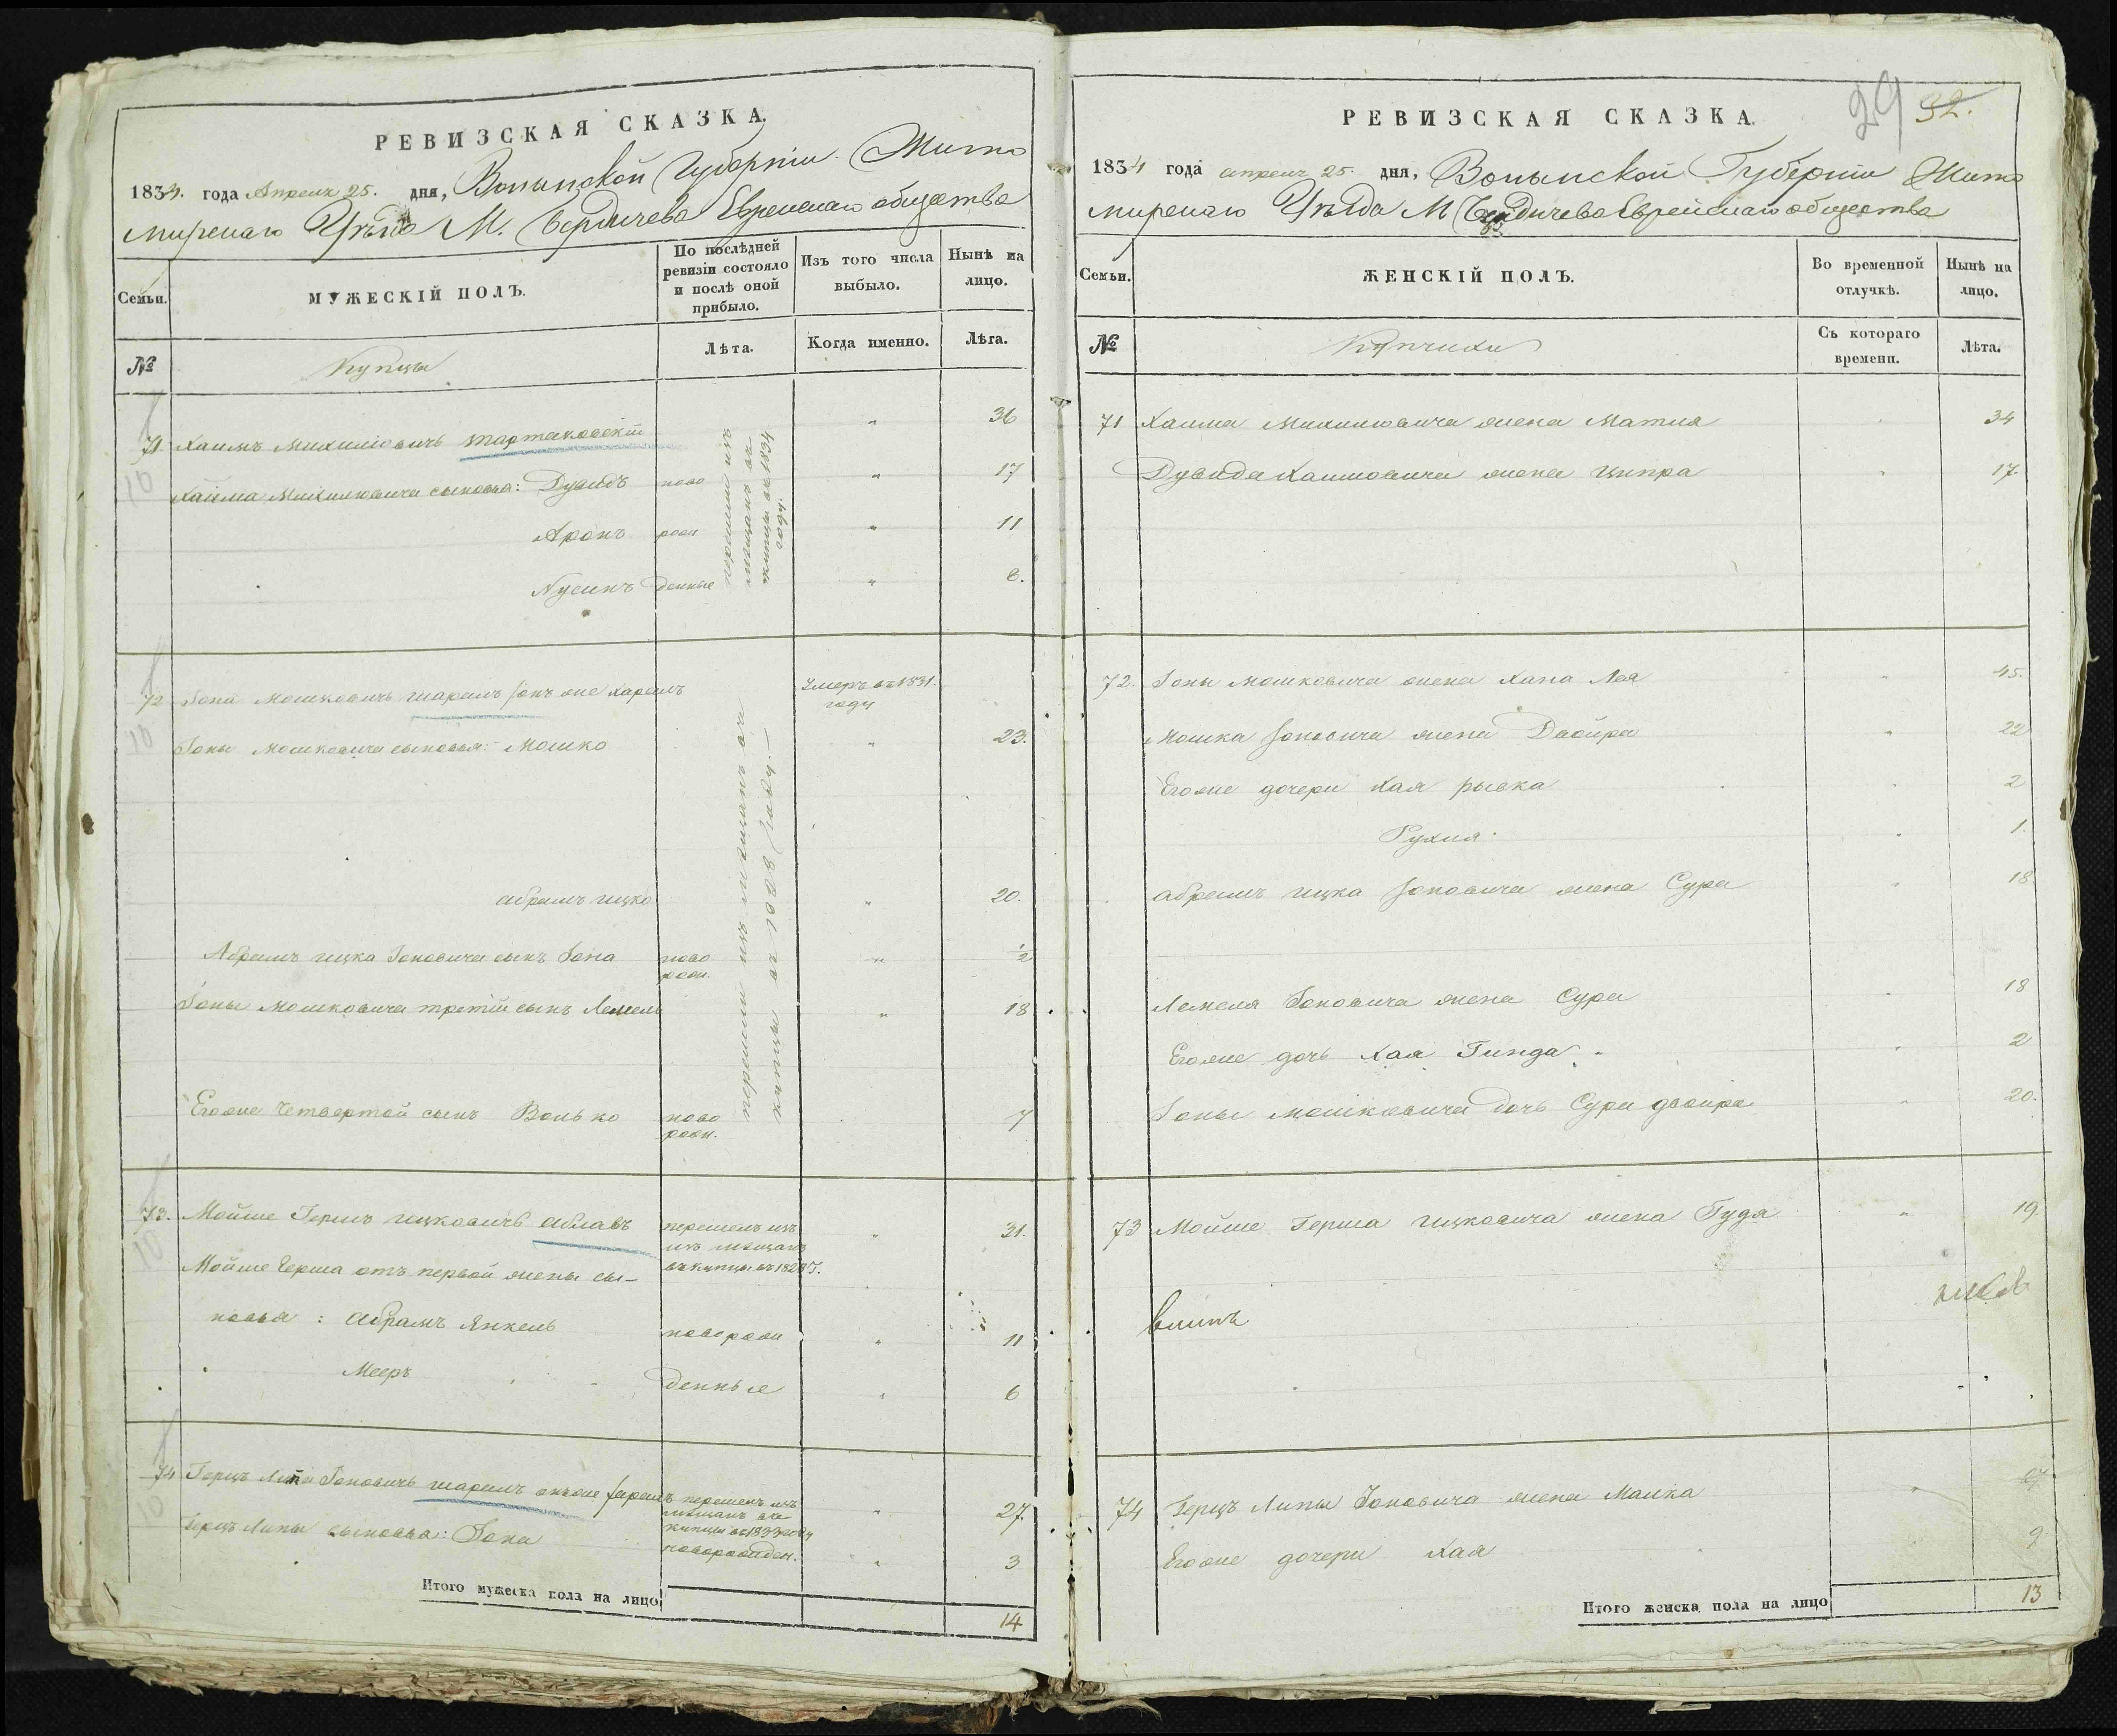 РЕВИЗСКАЯ СКАЗКА.
1834. года Апреля 25. дня, Волынской Губерніи Жито
мирскаго Уѣзда М. Бердичева Еврейскаго общества
Семьи.
МУЖЕСКІЙ ПОЛЪ.
По послѣдней ревизіи состояло и послѣ оной прибыло.
Изъ того числа выбыло.
Нынѣ на лицо.
№
Купцы
Лѣта.
Когда именно.
Лѣта.
71 Хаимъ Михилювичъ Тартаковскій " 36
10
Хаима Михилювича сыновья: Дувидъ ново " 17
Аронъ рож " 11
Нусинъ денные " 8.
перешли изъ
мещанъ въ
купцы въ 1834
году.
72 Іона Мошковичъ Шарамъ онъ же Харамъ Умеръ въ 1831. году
10
Іоны Мошковича сыновья: Мошко " 23.
Абрамъ Ицко " 20.
Абрамъ Ицка Іоновича сынъ Іона ново рож. " 1/2
Іоны Мошковича третій сынъ Лемель " 18
Егоже Четвертой сынъ Волько ново рож. 7
перешли изъ мещанъ въ
купцы въ году.
73. Мойше Гершъ Ицковичъ перешелъ изъ " 31.
изъ мещанъ
10
Мойше Герша отъ первой жены сы- въ купцы въ
новья: Абрамъ Янкель новорож " 11
Мееръ денные " 6
74 Герцъ Липа Іоновичъ Шарамъ онъ же Харамъ перешелъ изъ мещанъ въ купцы въ 1833 году " 27.
10
Герцъ Липы сыновья: Іона новорожден. " 3
Итого мужеска пола на лицо
14
29 32.
РЕВИЗСКАЯ СКАЗКА.
1834 года апреля 25. дня, Волынской Губерніи Жито
мирскаго Уѣзда М Бердичева Еврейскаго общества
Семьи.
ЖЕНСКІЙ ПОЛЪ.
Во временной отлучкѣ.
Нынѣ на лицо.
№
Купчихи
Съ котораго времени.
Лѣта.
71 Хаима Михилювича жена Матля " 34
Дувида Хаимовича жена Ципра " 17.
72. Іоны Мошковича жена Хана Лея " 45.
Мошка Іоновича жена Двойра " 22
Егоже дочери Хая Рывка " 2
Рухля " 1.
Абрамъ Ицка Іоновича жена Сура " 18
Лемеля Іоновича жена Сура " 18
Егоже дочь Хая Гинда " 2
Іоны Мошковича дочь Сура Двойра " 20.
73 Мойше Герша Ицковича жена Гудя " 19.
74 Герцъ Липы Іоновича жена Малка " 27
Егоже дочери Хая 9
Итого женска пола на лицо
13